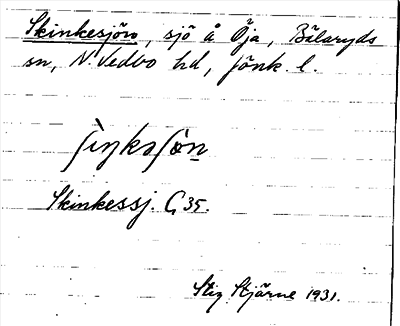 Skinkesjön, sjö å Öja, Bälaryds
sn, N. Vedbo hd, Jönk. l.
ʃìŋksʃön
Skinkessj. G 35.
Stig Stjärne 1931.